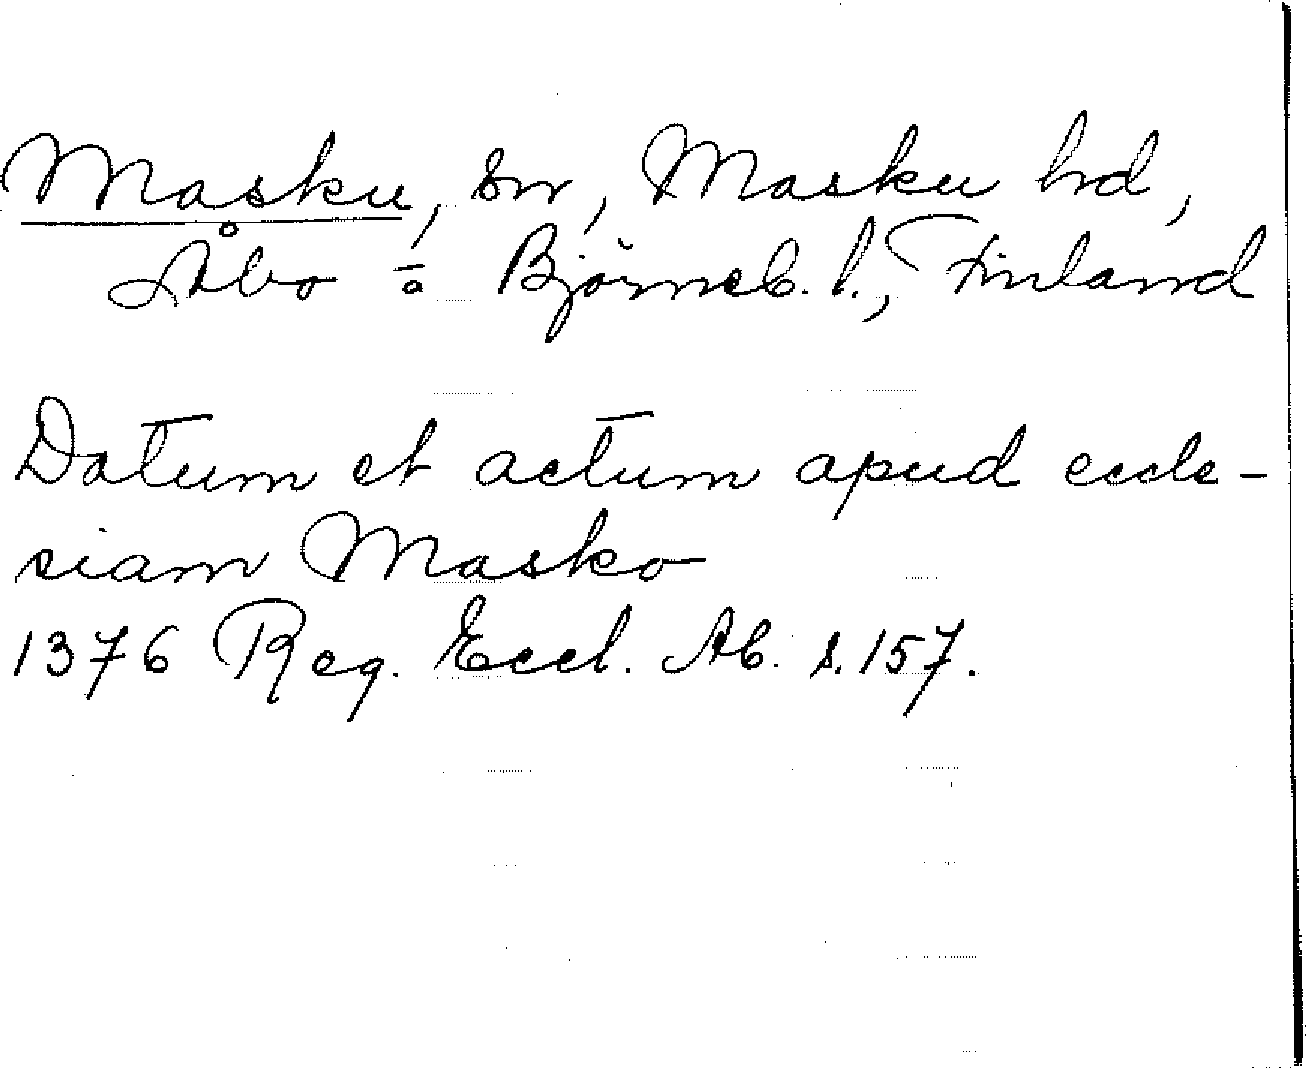 Masku, sn, Masku hd,
Åbo = Björneb. l., Finland
Datum et actum apud eccle-
siam Masko
1376 Reg. Eccl. Ab. s. 157.